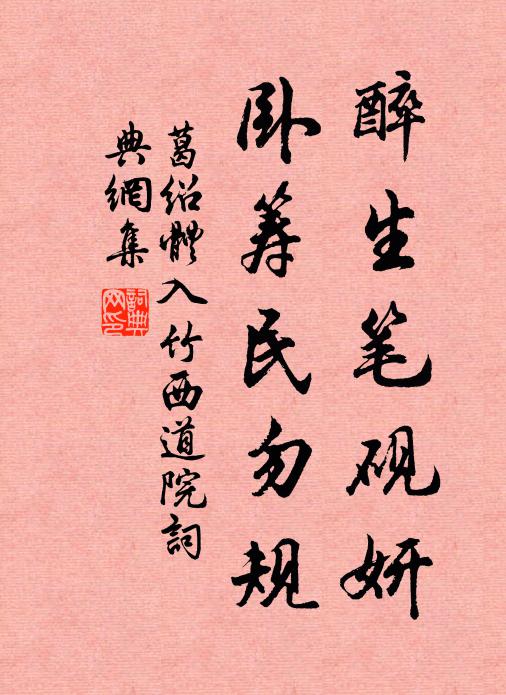 醉生笔砚妍
卧筹民勿规
葛绍体入竹西道院詞
典網集
詞典網印